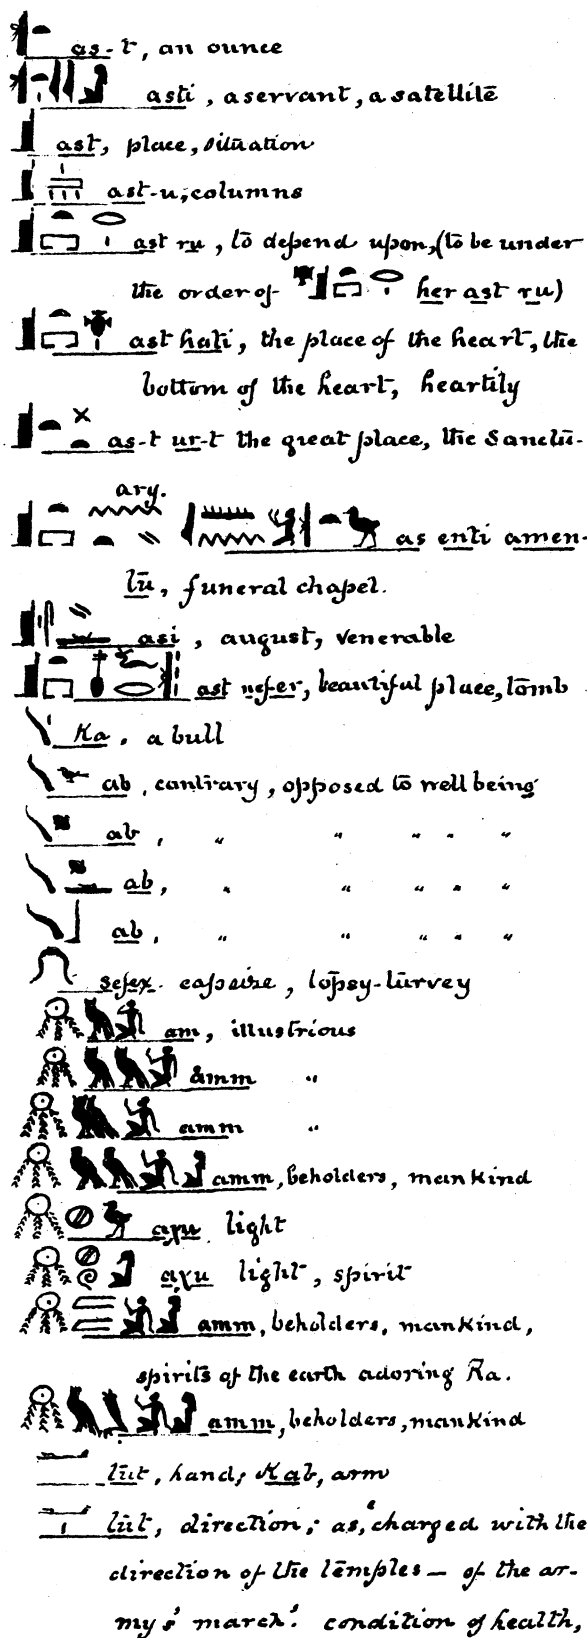 as-t, an ounce
asti, a servant, a satellite
ast, place, situation
ast-u, columns
ast ru, to depend upon, (to be under
the order of her ast ru)
ast hati, the place of the heart, the
bottom of the heart, heartily
as-t ur-t the great place, the Sanctu-
ary.
as enti amen-
tu, funeral chapel.
asi, august, venerable
ast nefer, beautiful place, tomb
Ka, a bull
ab, contrary, opposed to well being
ab, " " " " "
ab, " " " " "
ab, " " " " "
sefex. capsize, topsy-turvey
am, illustrious
amm "
amm "
amm, beholders, mankind
aχu light
aχu light, spirit
amm, beholders, mankind,
spirits of the earth adoring Ra.
amm, beholders, mankind
tut, hand; Kab, arm
tut, direction; as, "charged with the
direction of the temples — of the ar-
my's march". condition of health,